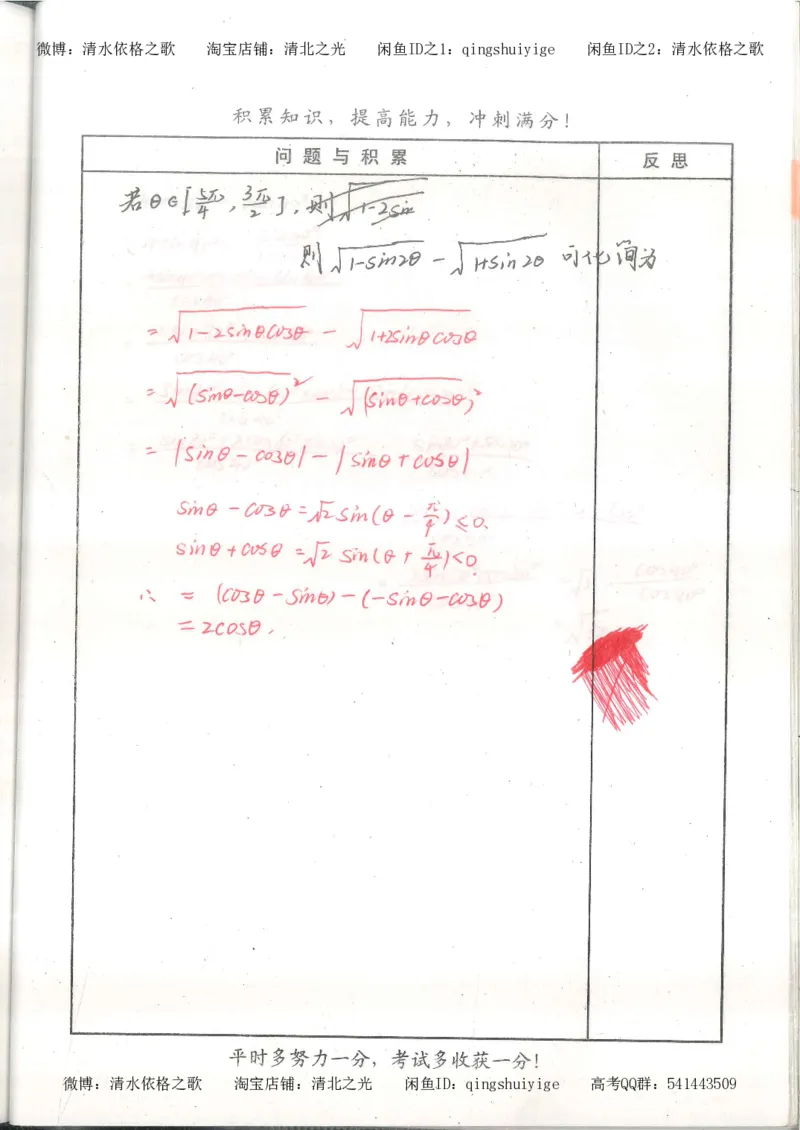 微博：清水依格之歌 淘宝店铺：清北之光 闲鱼ID之1：qingshuiyige 闲鱼ID之2：清水依格之歌
积累知识，提高能力，冲刺满分！
问题与积累 反思
若θ∈[5π/4, 3π/2]，则√1-2sin
则√(1-sin2θ) - √(1+sin2θ) 可化简为
= √(1-2sinθcosθ) - √(1+2sinθcosθ)
= √(sinθ-cosθ)² - √(sinθ+cosθ)²
= |sinθ-cosθ| - |sinθ+cosθ|
sinθ-cosθ=√2 sin(θ-π/4)≤0.
sinθ+cosθ=√2 sin(θ+π/4)<0.
∴ = (cosθ-sinθ)-(-sinθ-cosθ)
=2cosθ.
平时多努力一分，考试多收获一分！
微博：清水依格之歌 淘宝店铺：清北之光 闲鱼ID：qingshuiyige 高考QQ群：541443509